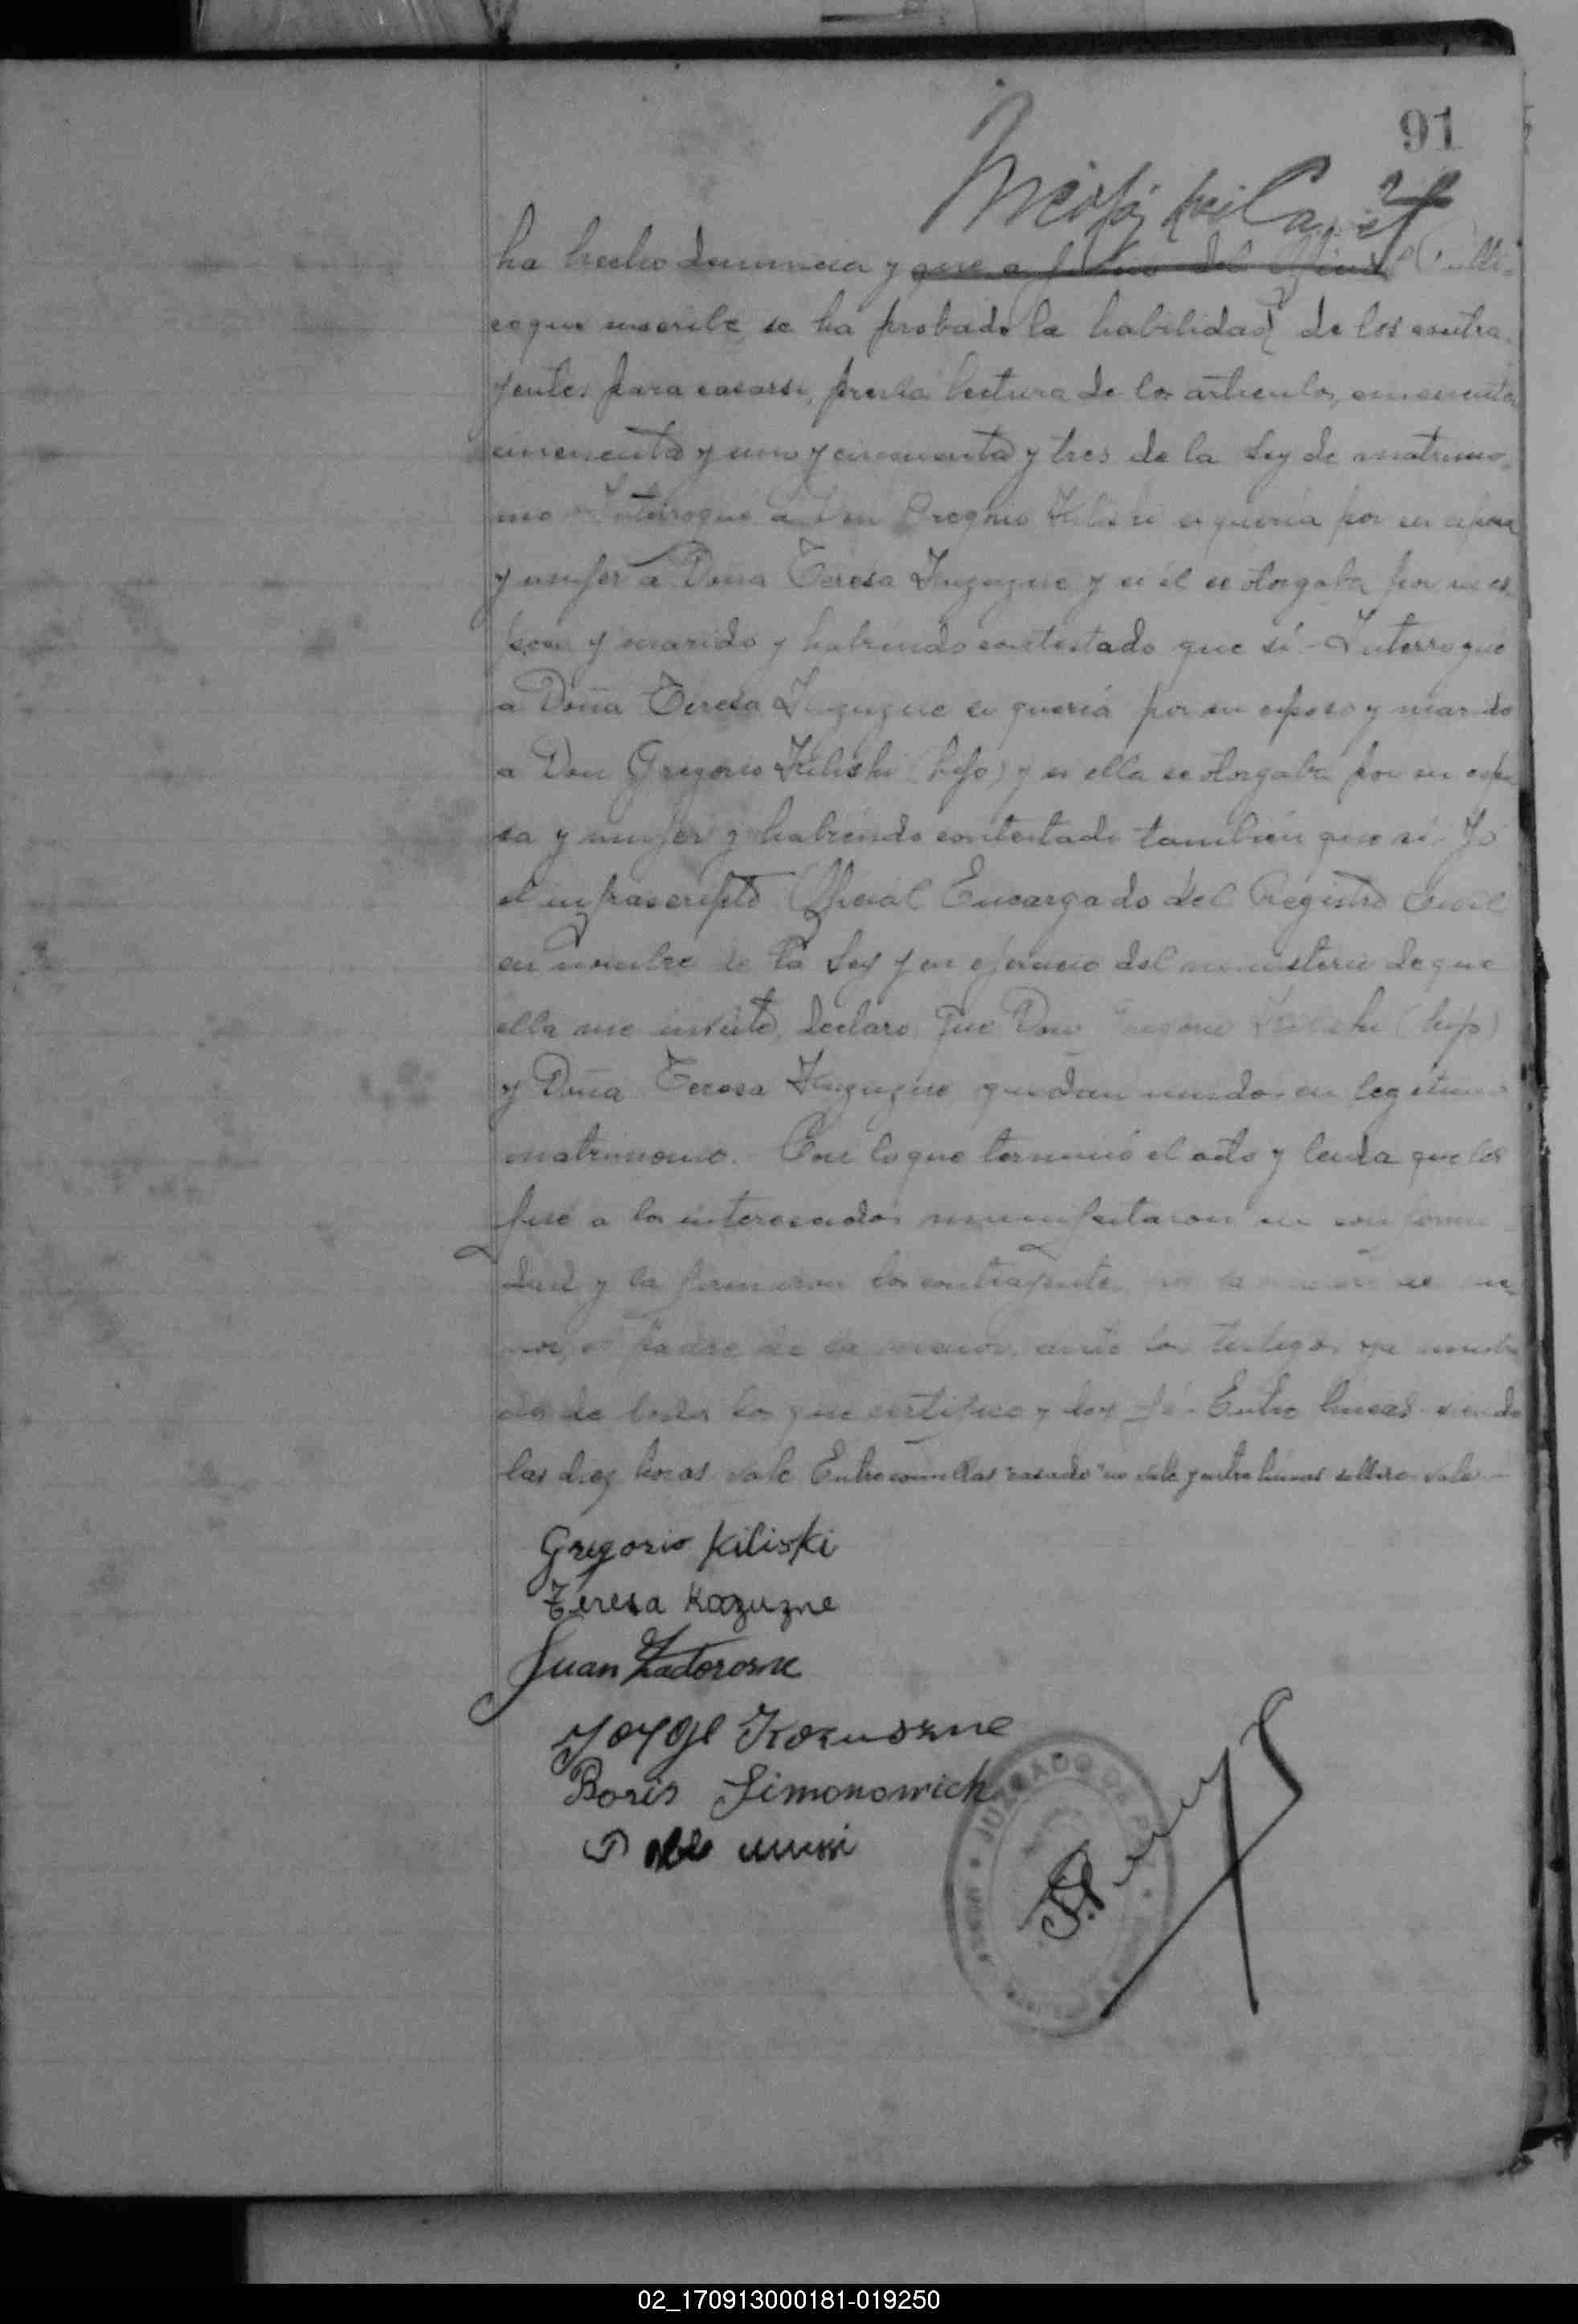 91
ha hecho denuncia y que a juicio del Oficial Públi-
co que suscribe, se ha probado la habilidad de los contra-
yentes para casarse, previa lectura de los articulos, cincuenta
cincuenta y uno y cincuenta y tres de la Ley de matrimo-
nio Interrogué a Don Gregorio Kiliski si quería por su esposa
y mujer a Doña Teresa y si él se otorgaba por su es-
poso y marido y habiendo contestado que sí - Interrogué
a Doña Teresa si quería por su esposo y marido
a Don Gregorio Kiliski (hijo) y si ella se otorgaba por su espo-
sa y mujer y habiendo contestado también que sí - Yo
el infrascripto Oficial Encargado del Registro Civil
en nombre de la Ley y en ejercicio del ministerio de que
ella me inviste, declaro que Don Gregorio Kiliski (hijo)
y Doña Teresa quedan unidos en legitimo
matrimonio. Con lo que terminó el acto y leida que les
fué a los interesados manifestaron su conformi-
dad y la firmaron los contrayentes
el padre de la menor, ante los testigos ya
de todo lo que certifico y doy fé - Entre lineas - siendo
las diez horas vale Entre comillas "casado" no vale y entre lineas soltero - vale -
Gregorio Kiliski
Teresa Kozuzne
Juan Zadorosne
Jorge Kozuszne
Boris Simonowich
JUZGADO DE PAZ
02_170913000181-019250